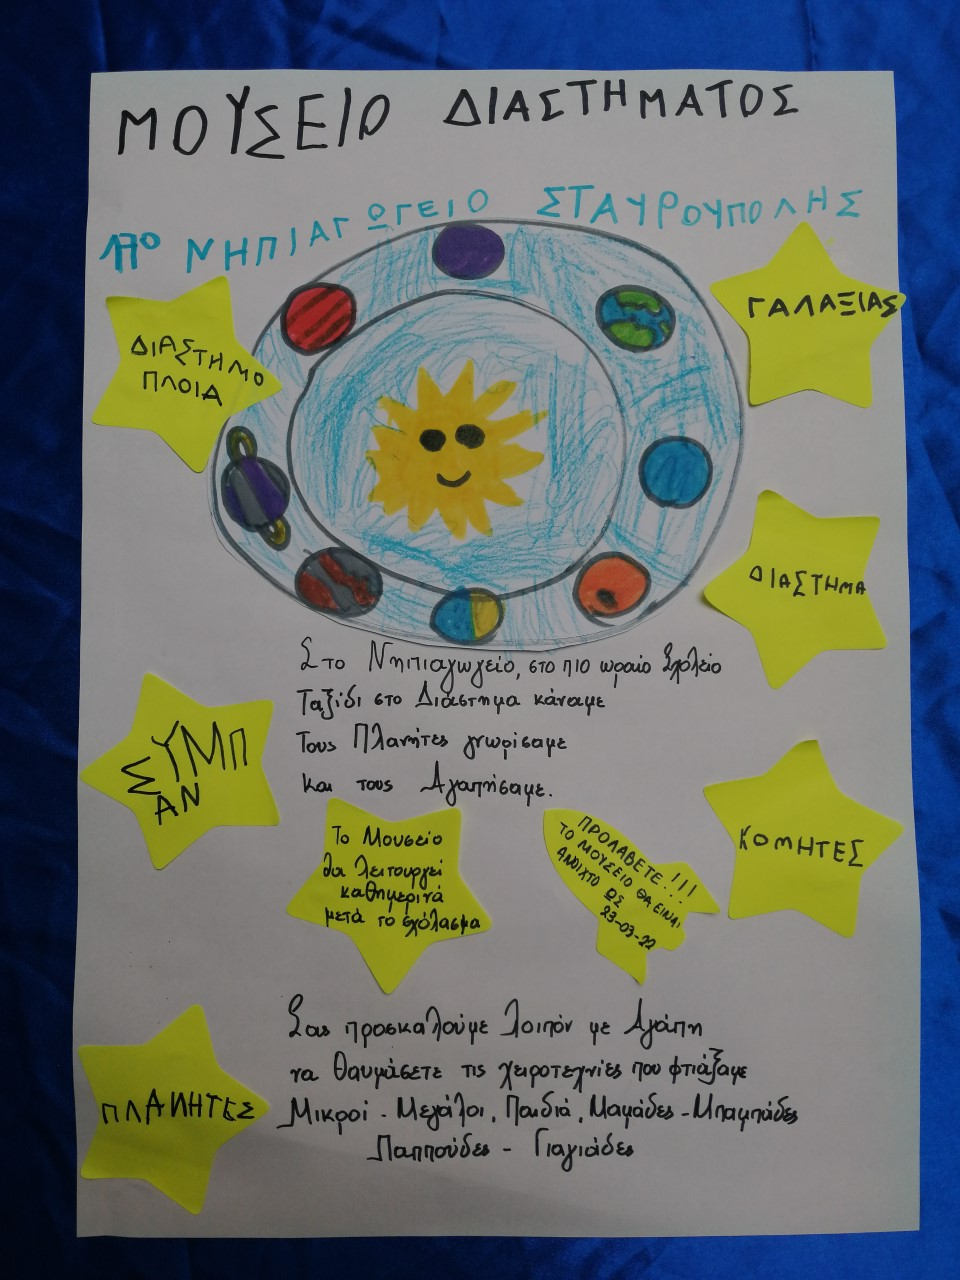 ΜΟΥΣΕΙΟ ΔΙΑΣΤΗΜΑΤΟΣ
17ο ΝΗΠΙΑΓΩΓΕΙΟ ΣΤΑΥΡΟΥΠΟΛΗΣ
ΔΙΑΣΤΗΜΟ
ΠΛΟΙΑ
ΓΑΛΑΞΙΑΣ
ΔΙΑΣΤΗΜΑ
Στο Νηπιαγωγείο, στο πιο ωραίο Σχολείο
Ταξίδι στο Διάστημα κάναμε
Τους Πλανήτες γνωρίσαμε
και τους Αγαπήσαμε.
ΣΥΜΠ
ΑΝ
ΚΟΜΗΤΕΣ
Το Μουσείο
θα λειτουργεί
καθημερινά
μετά το σχόλασμα
ΠΡΟΛΑΒΕΤΕ!!!
ΤΟ ΜΟΥΣΕΙΟ ΘΑ ΕΙΝΑΙ
ΑΝΟΙΧΤΟ ΩΣ
23-03-22
Σας προσκαλούμε λοιπόν με Αγάπη
να θαυμάσετε τις χειροτεχνίες που φτιάξαμε
Μικροί - Μεγάλοι, Παιδιά, Μαμάδες - Μπαμπάδες
Παππούδες - Γιαγιάδες
ΠΛΑΝΗΤΕΣ